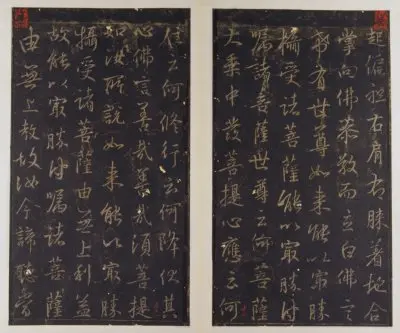 起偏袒右肩右膝着地合
掌向佛恭敬而立白佛言
希有世尊如来能以寂勝
攝受諸菩薩能以寂勝付
嘱諸菩薩世尊云何菩薩
大乘中發菩提心應云何
住云何修行云何降伏其
心佛言善哉善哉須菩提
如汝所說如来能以寂勝
攝受諸菩薩由無上利益
故能以寂勝付嘱諸菩薩
由無上教故汝今諦聽當